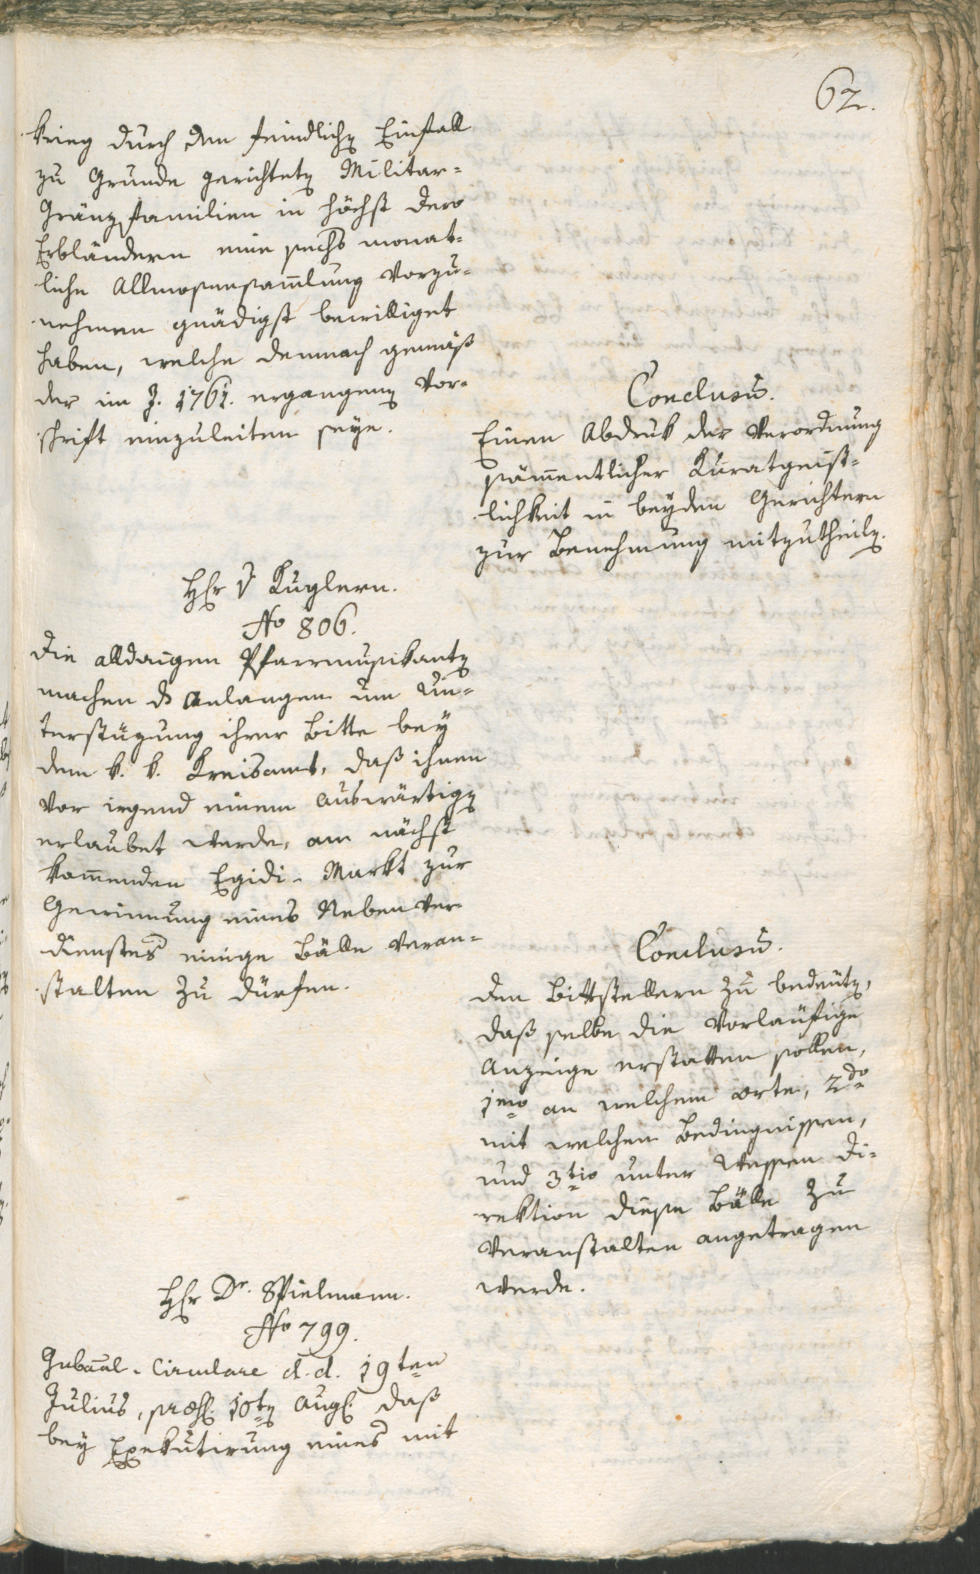 62.
krieg durch den feindlich[en] Einfall
zu Grunde gerichtete[n] Militar=
Gränz familien in höchst dero
Erbländern eine sechs monat=
liche Allmosensam̅lung vorzu=
nehmen gnädigst bewilliget
haben, welche demnach gemäß
der im J. 1761. ergangene[n] Vor=
schrift einzuleiten seye.
Conclusū.
Einen Abdruk der Verordnung
säm̅entlicher Kuratgeist=
lichkeit in beyden Gerichtern
zur Benehmung mitzutheile[n].
H[er]r v Kuglern.
No 806.
Die alldaigen Pfarrmusikante[n]
machen ds Anlangen um Un=
terstüzung ihrer Bitte bey
dem k. k. Kreisamt, daß ihnen
vor irgend einem auswärtige[n]
erlaubet werde, am nächst
kom̅enden Egidi-Markt zur
Gewinnung eines Neben Ver=
dienstes einige Bälle veran=
stalten zu dürfen.
Conclusū.
Den Bittstellern zu bedeute[n],
daß selbe die vorläufige
Anzeige erstatten sollen,
1mo an welchem Orte, 2do
mit welchen Bedingnissen,
und 3tio unter wessen Di=
rektion diese Bälle zu
veranstalten angetragen
werde.
H[er]r Dr. Spielmann.
No 799.
Gubaal-Circulare d. d. 19ten
Julius, praes. 10te[n] Aug. daß
bey Exekutirung eines mit